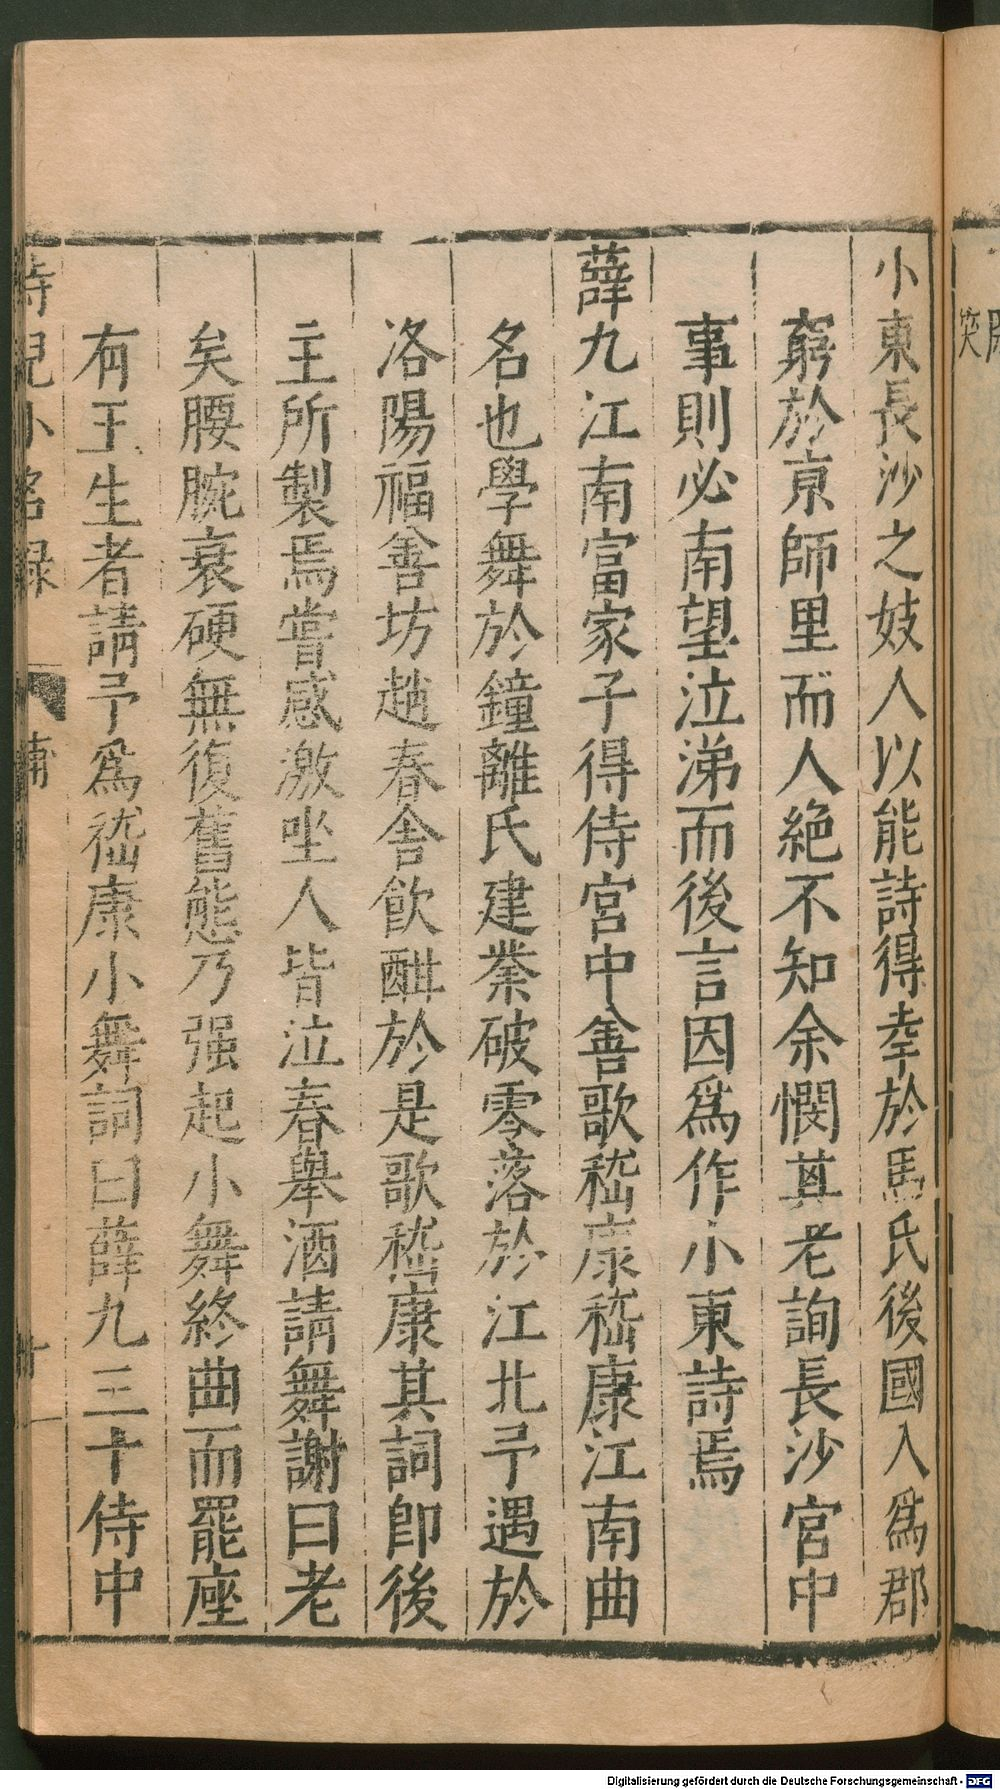 小東長沙之妓人以能詩得幸於馬氏後國入爲郡
窮於京師里而人絶不知余憫其老詢長沙宮中
事則必南望泣涕而後言因爲作小東詩焉
薛九江南富家子得侍宮中善歌嵇康嵇康江南曲
名也學舞於鐘離氏建業破零落於江北予遇於
洛陽福善坊趙春舍飲酣於是歌嵇康其詞即後
主所製焉嘗感激坐人皆泣春舉酒請舞謝曰老
矣腰腕衰硬無復舊態乃强起小舞終曲而罷座
有王生者請予爲嵇康小舞詞曰薛九三十侍中
侍兒小名録
補
Digitalisierung gefördert durch die Deutsche Forschungsgemeinschaft - DFG